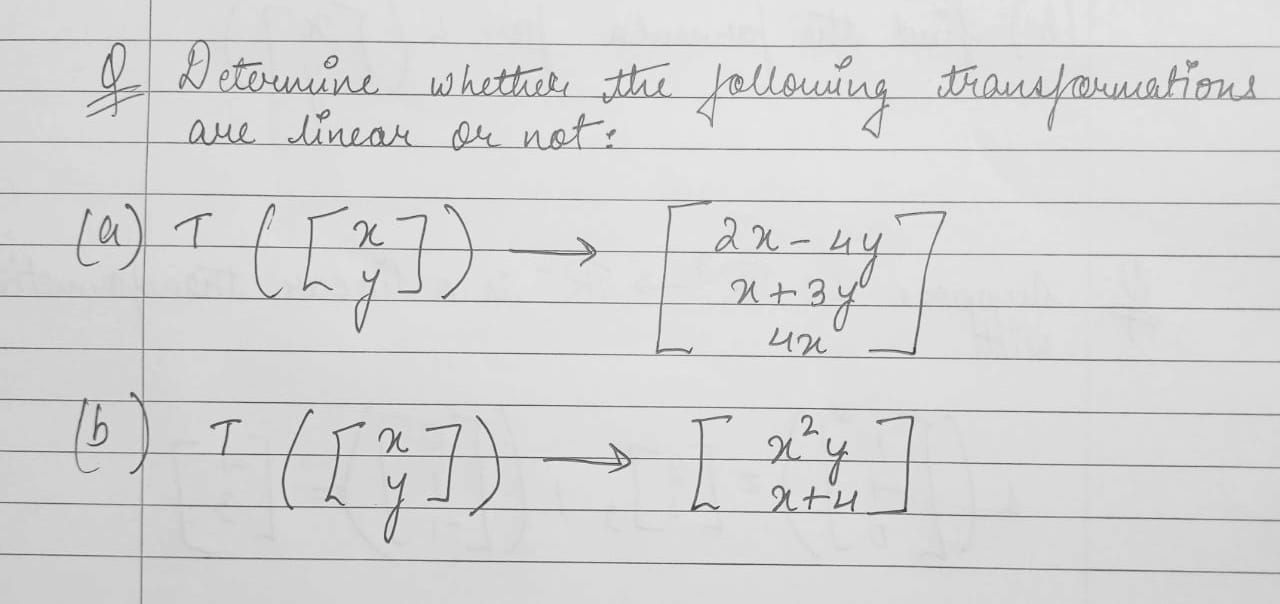 Q Determine whether the following transformations
are linear or not:
(a) T ([x y]) → [2x - 4y
x + 3y
4x]
(b) T ([x y]) → [x²y
x+4]